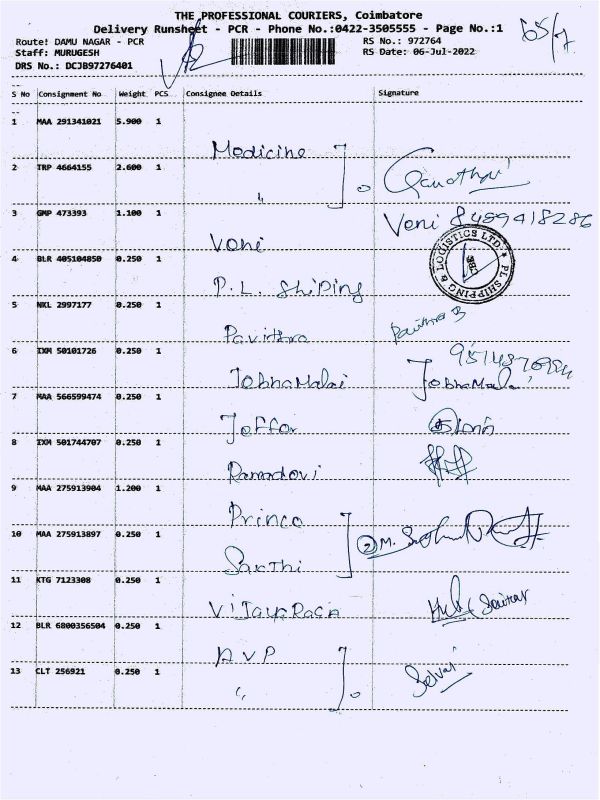 THE PROFESSIONAL COURIERS, Coimbatore
Delivery Runsheet - PCR - Phone No.:0422-3505555 - Page No.:1
65/7
Route: DAMU NAGAR - PCR
RS No.: 972764
Staff: MURUGESH
RS Date: 06-Jul-2022
DRS No.: DCJB97276401
S No Consignment No Weight PCS Consignee Details Signature
1 MAA 291341021 5.900 1 Medicine
2 TRP 4664155 2.600 1 "
3 GMP 473393 1.100 1 Veni Veni 8489418286
4 BLR 405104850 0.250 1 P.L. Shiping PL SHIPPING & LOGISTICS LTD. CBE
5 NKL 2997177 0.250 1 Pavithra Pavithra B
6 IXM 50101726 0.250 1 JobhaMalai JobhaMalai
7 MAA 566599474 0.250 1 Joffar
8 IXM 501744707 0.250 1 Ramadevi
9 MAA 275913904 1.200 1 Prince
10 MAA 275913897 0.250 1 Sakthi
11 KTG 7123308 0.250 1 VijayaRaga
12 BLR 6800356504 0.250 1 A V P
13 CLT 256921 0.250 1 " Selvai